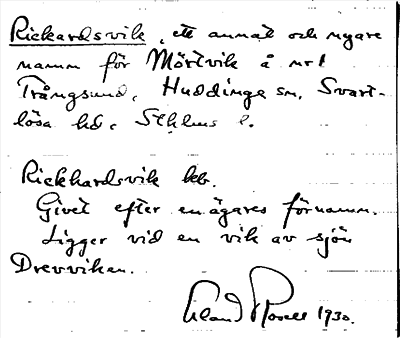 Rickardsvik, ett annat och nyare
namn för Mörtvik å nr 1
Trångsund, Huddinge sn, Svart-
lösa hd, Sthlms l.
Rickhardsvik beb.
Givet efter en ägares förnamn.
Ligger vid en vik av sjön
Drevviken.
Erland Rosell 1930.